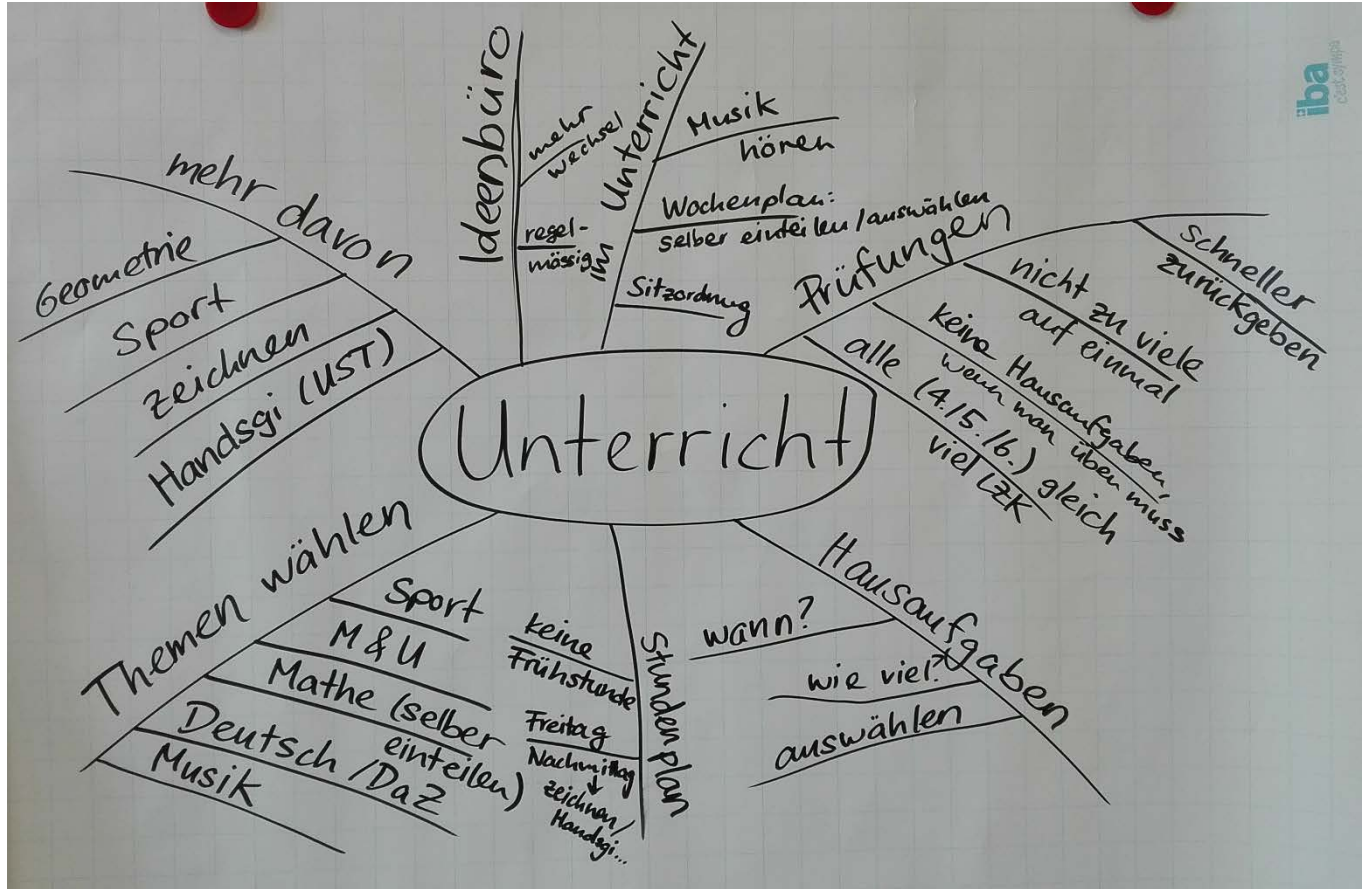 Unterricht
mehr davon
Geometrie
Sport
zeichnen
Handsgi (UST)
Ideenbüro
mehr
wechsel
regel-
mässig
im Unterricht
Musik
hören
Wochenplan:
selber einteilen/auswählen
Sitzordnung
Prüfungen
schneller
zurückgeben
nicht zu viele
auf einmal
keine Hausaufgaben,
wenn man üben muss
alle (4./5./6.) gleich
viel LZK
Hausaufgaben
wann?
wie viel?
auswählen
Stundenplan
keine
Frühstunde
Freitag
Nachmittag
↓
zeichnen/
Handsgi...
Themen wählen
Sport
M & U
Mathe (selber
einteilen)
Deutsch/DaZ
Musik
iba
c'est sympa